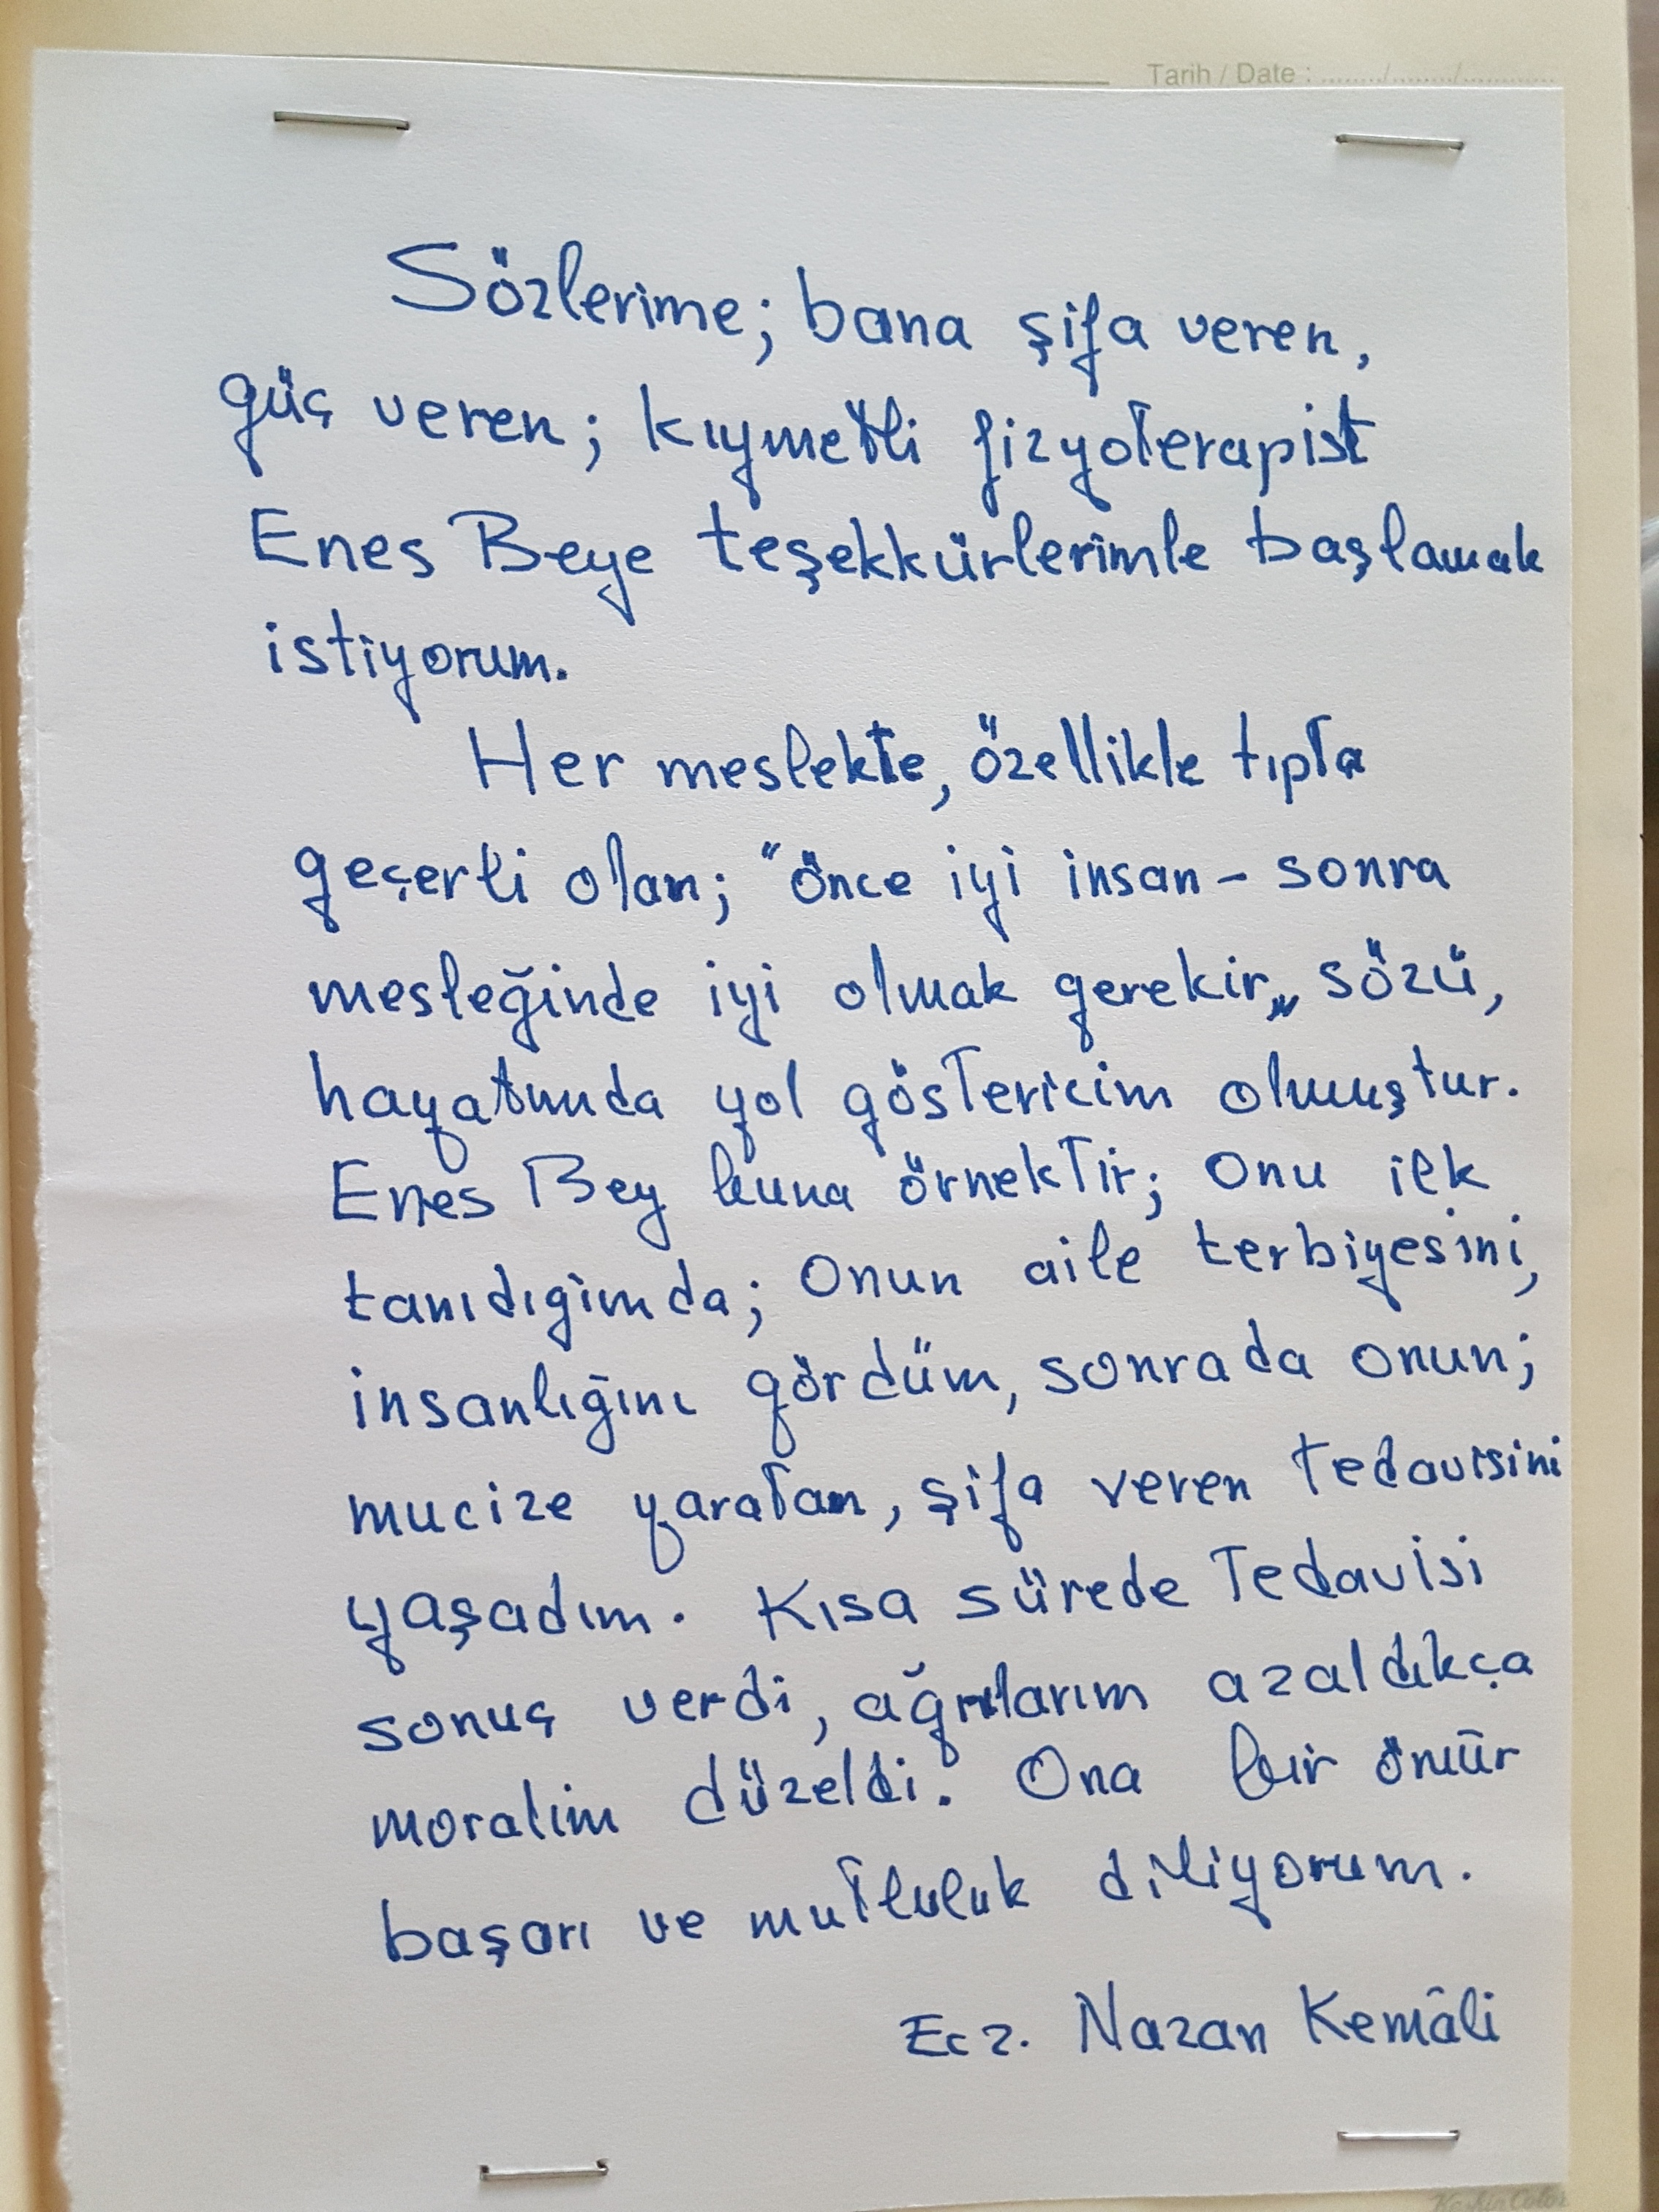 Tarih / Date : ......../......../............
Sözlerime; bana şifa veren,
güç veren; kıymetli fizyoterapist
Enes Beye teşekkürlerimle başlamak
istiyorum.
Her meslekte, özellikle tıpta
geçerli olan; "önce iyi insan - sonra
mesleğinde iyi olmak gerekir„ sözü,
hayatımda yol göstericim olmuştur.
Enes Bey buna örnektir; Onu ilk
tanıdığımda; Onun aile terbiyesini,
insanlığını gördüm, sonrada onun;
mucize yaratan, şifa veren tedavisini
yaşadım. Kısa sürede Tedavisi
sonuç verdi, ağrılarım azaldıkça
moralim düzeldi. Ona bir ömür
başarı ve mutluluk diliyorum.
Ecz. Nazan Kemâli
KeskinColor